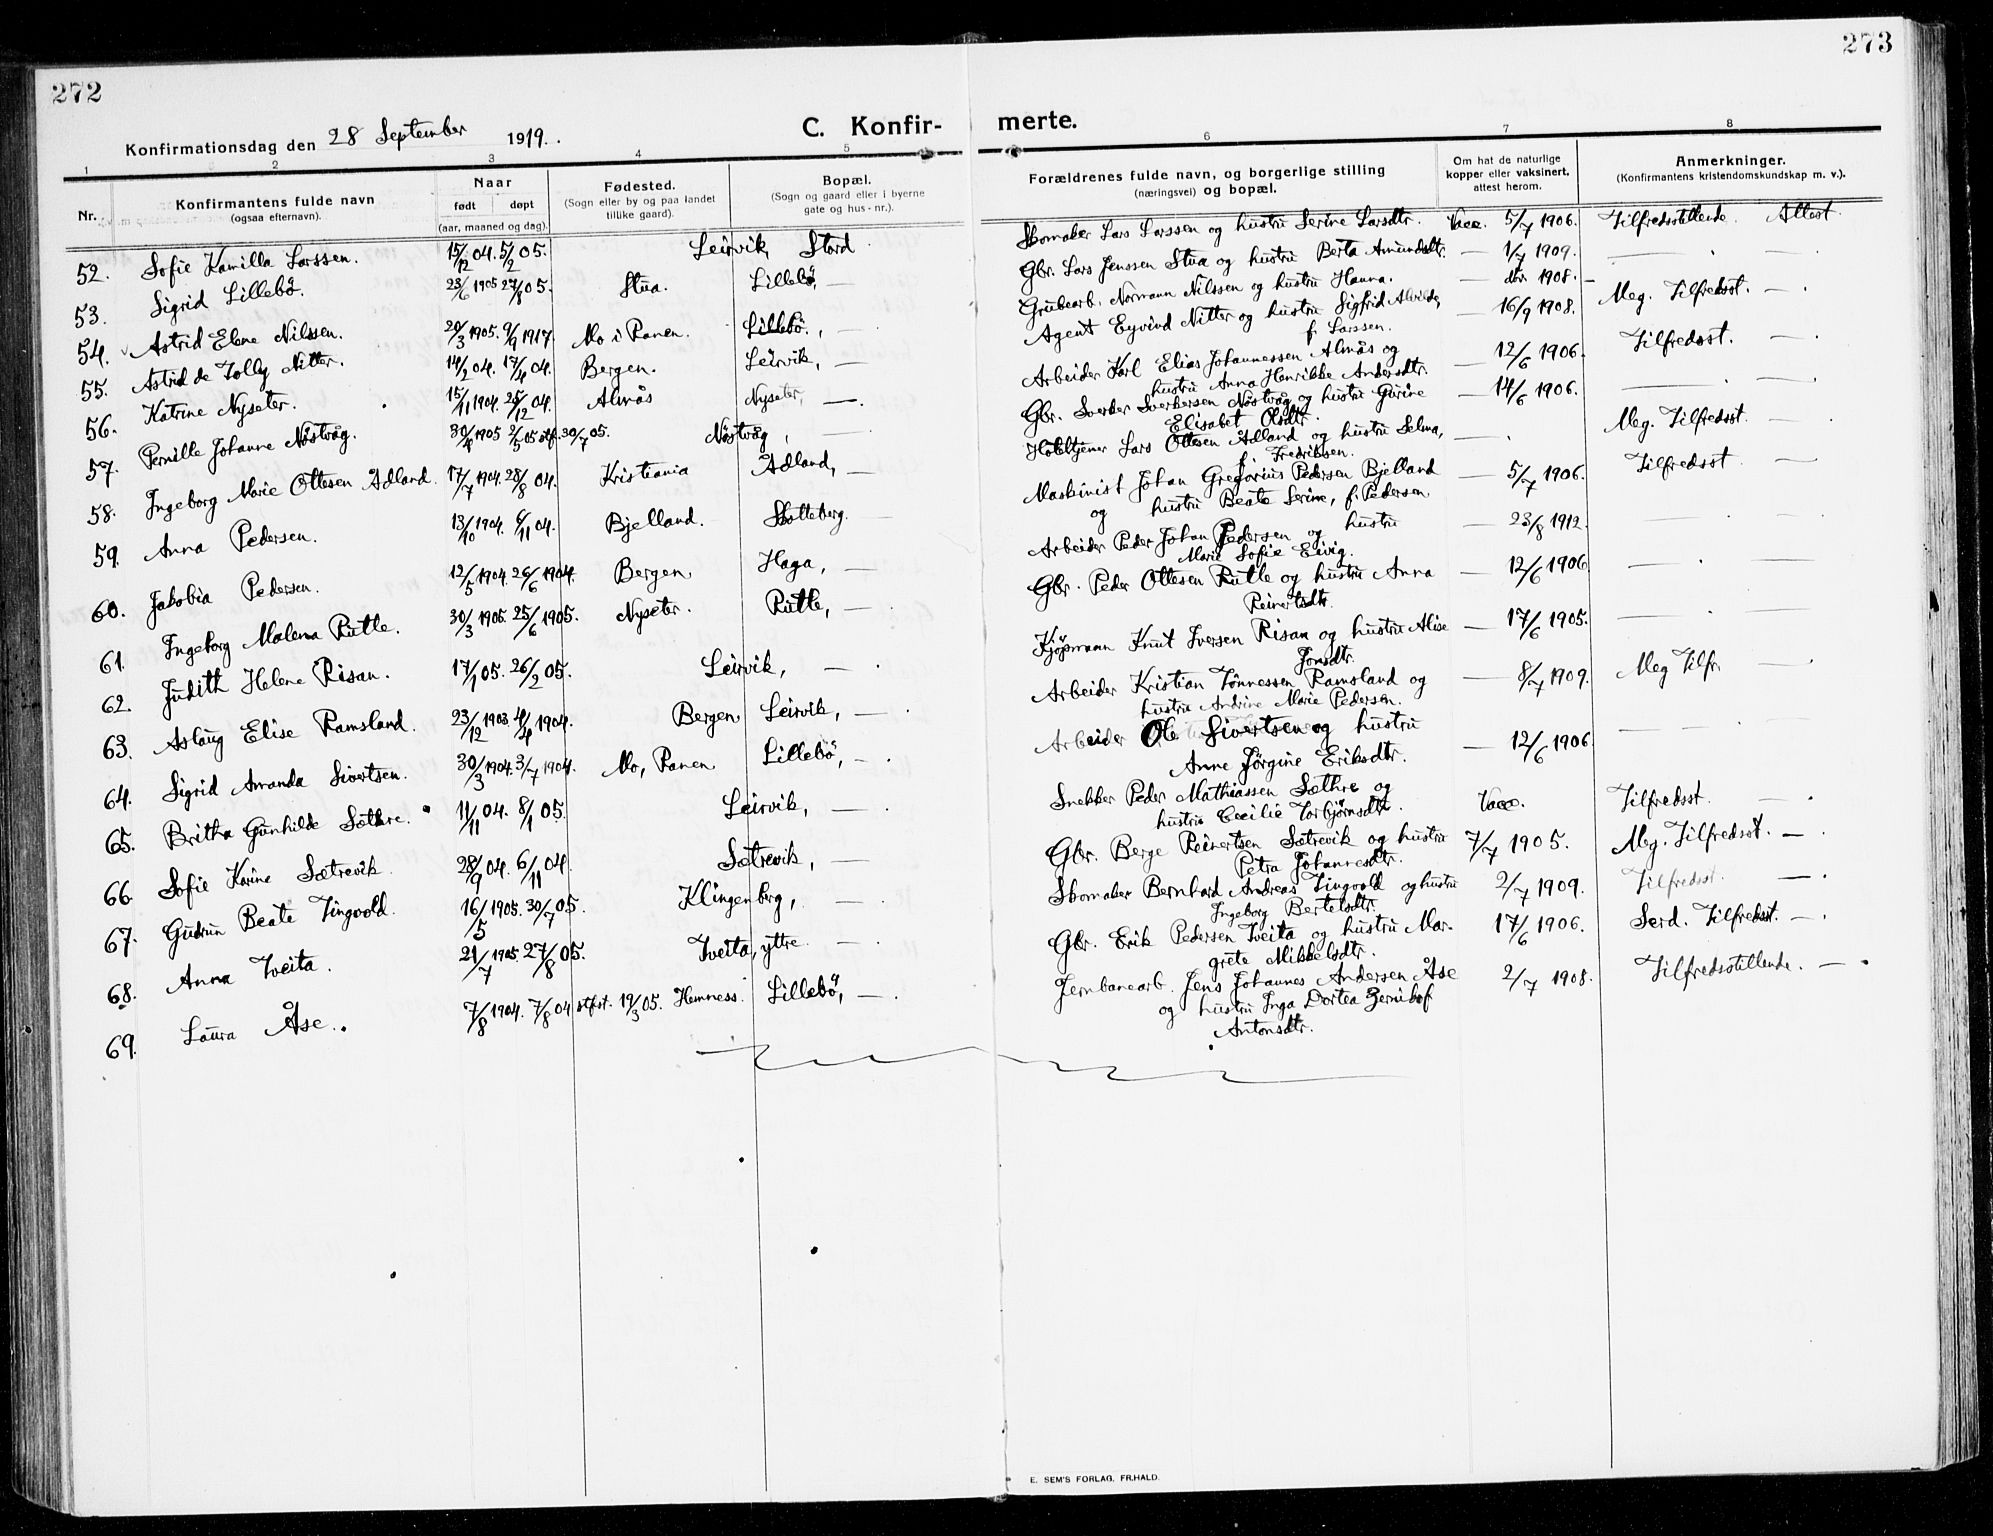 272
273
Konfirmationsdag den 28 September 1919.
C. Konfir-
merte.
1 2 3 4 5 6 7 8
Nr.
Konfirmantens fulde navn
(ogsaa efternavn).
Naar
født døpt
(aar, maaned og dag).
Fødested.
(Sogn eller by og paa landet
tillike gaard).
Bopæl.
(Sogn og gaard eller i byerne
gate og hus-nr.).
Forældrenes fulde navn, og borgerlige stilling
(næringsvei) og bopæl.
Om hat de naturlige
kopper eller vaksinert,
attest herom.
Anmerkninger.
(Konfirmantens kristendomskundskap m. v.).
52. Sofie Kamilla Larssen. 15/12 04. 5/2 05. Leirvik, Stord
Skomaker Lars Larssen og hustru Serine Larsdtr. Vacc. 5/7 1906. Tilfredsstillende. Attest.
53. Sigrid Lillebö. 23/6 1905 27/8 05. Stua. Lillebö, —
Gbr. Lars Jenssen Stua og hustru Berta Amundsdtr. — 1/7 1909. — —
54. Astrid Elene Nilssen. 20/3 1905. 9/9 1917. Mo i Ranen. Lillebö, —
Grubearb. Normann Nilssen og hustru Hanna. — 1908. — Meg. Tilfredsst. —
55. Astrid de Tolly Nitter. 14/2 04. 17/4 04. Bergen. Leirvik, —
Agent Eyvind Nitter og hustru Sigfrid Alvilde,
f. Larssen. — 16/9 1908. Tilfredsst. —
56. Katrine Nyseter. 15/11 1904. 25/12 04. Almås Nyseter, —
Arbeider Karl Elias Johannessen Almås og
hustru Anna Henrikke Andersdtr. — 12/6 1906. — —
57. Pernille Johanne Nöstvåg. 30/4 1905 2/5 05 stf. 30/7 05. Nöstvåg, —
Gbr. Sverker Sverkersen Nöstvåg og hustru Gurine
Elisabet Olsdtr. — 14/6 1906. Meg. Tilfredsst. —
58. Ingeborg Marie Ottesen Ådland. 17/7 1904. 28/8 04. Kristiania Ådland, —
Lars Ottesen Ådland og hustru Selma,
f. Fredriksen. — Tilfredsst. —
59. Anna Pedersen. 13/10 1904. 6/11 04. Bjelland. Skotteberg. —
Maskinist Johan Gregorius Pedersen Bjelland
og hustru Beate Serine, f. Pedersen — 5/7 1906. — —
60. Jakobia Pedersen. 12/5 1904. 26/6 1904. Bergen Haga, —
Arbeider Peder Johan Pedersen og hustru
Marie Sofie Eivig. — 23/8 1912. — —
61. Ingeborg Malena Rutle. 30/3 1905. 25/6 1905. Nyseter. Rutle, —
Gbr. Peder Ottesen Rutle og hustru Anna
Reinertsdtr. — 12/6 1906. — —
62. Judith Helene Risan. 17/1 05. 26/2 05. Leirvik, —
Kjöpmann Knut Iversen Risan og hustru Alise
Jonsdtr. — 17/6 1905. Meg Tilfr. —
63. Aslaug Elise Ramsland. 23/12 1903 4/4 1904. Bergen Leirvik, —
Arbeider Kristian Tönnessen Ramsland og
hustru Andrine Marie Pedersen. — 8/7 1909. — —
64. Sigrid Amanda Sivertsen. 30/3 1904. 3/7 1904. Mo, Ranen Lillebö, —
Arbeider Ole Sivertsen og hustru
Anne Jörgine Eriksdtr. — 12/6 1906
65. Britha Gunhilde Sæthre. 11/11 04. 8/1 05. Leirvik, —
Snekker Peder Mathiassen Sæthre og
hustru Cecilie Torbjörnsdtr. Vacc. Tilfredsst. —
66. Sofie Karine Sætrevik. 28/9 04. 6/11 04. Sætrevik, —
Gbr. Berge Reinertsen Sætrevik og hustru
Petra Johannesdtr. 7/7 1905. Meg. Tilfredsst. —
67. Gudrun Beate Tingvold. 16/5 1905. 30/7 05. Klingenberg, —
Skomaker Bernhard Andreas Tingvold og hustru
Ingeborg Bertelsdtr. 2/7 1909. Tilfredsst. —
68. Anna Tveita. 21/7 1905. 27/8 05. Tveita, yttre. —
Gbr. Erik Pedersen Tveita og hustru Mar-
grete Mikkelsdtr. 17/6 1906. Serd. Tilfredsst. —
69. Laura Åse. 7/8 1904. 7/8 04 stfst. 19/3 05. Hemness. Lillebö, —
Jernbanearb. Jens Johannes Andersen Åse
og hustru Inga Dortea
Antonsdtr. 2/7 1908. Tilfredsstillende. —
E. SEM'S FORLAG, FR.HALD.